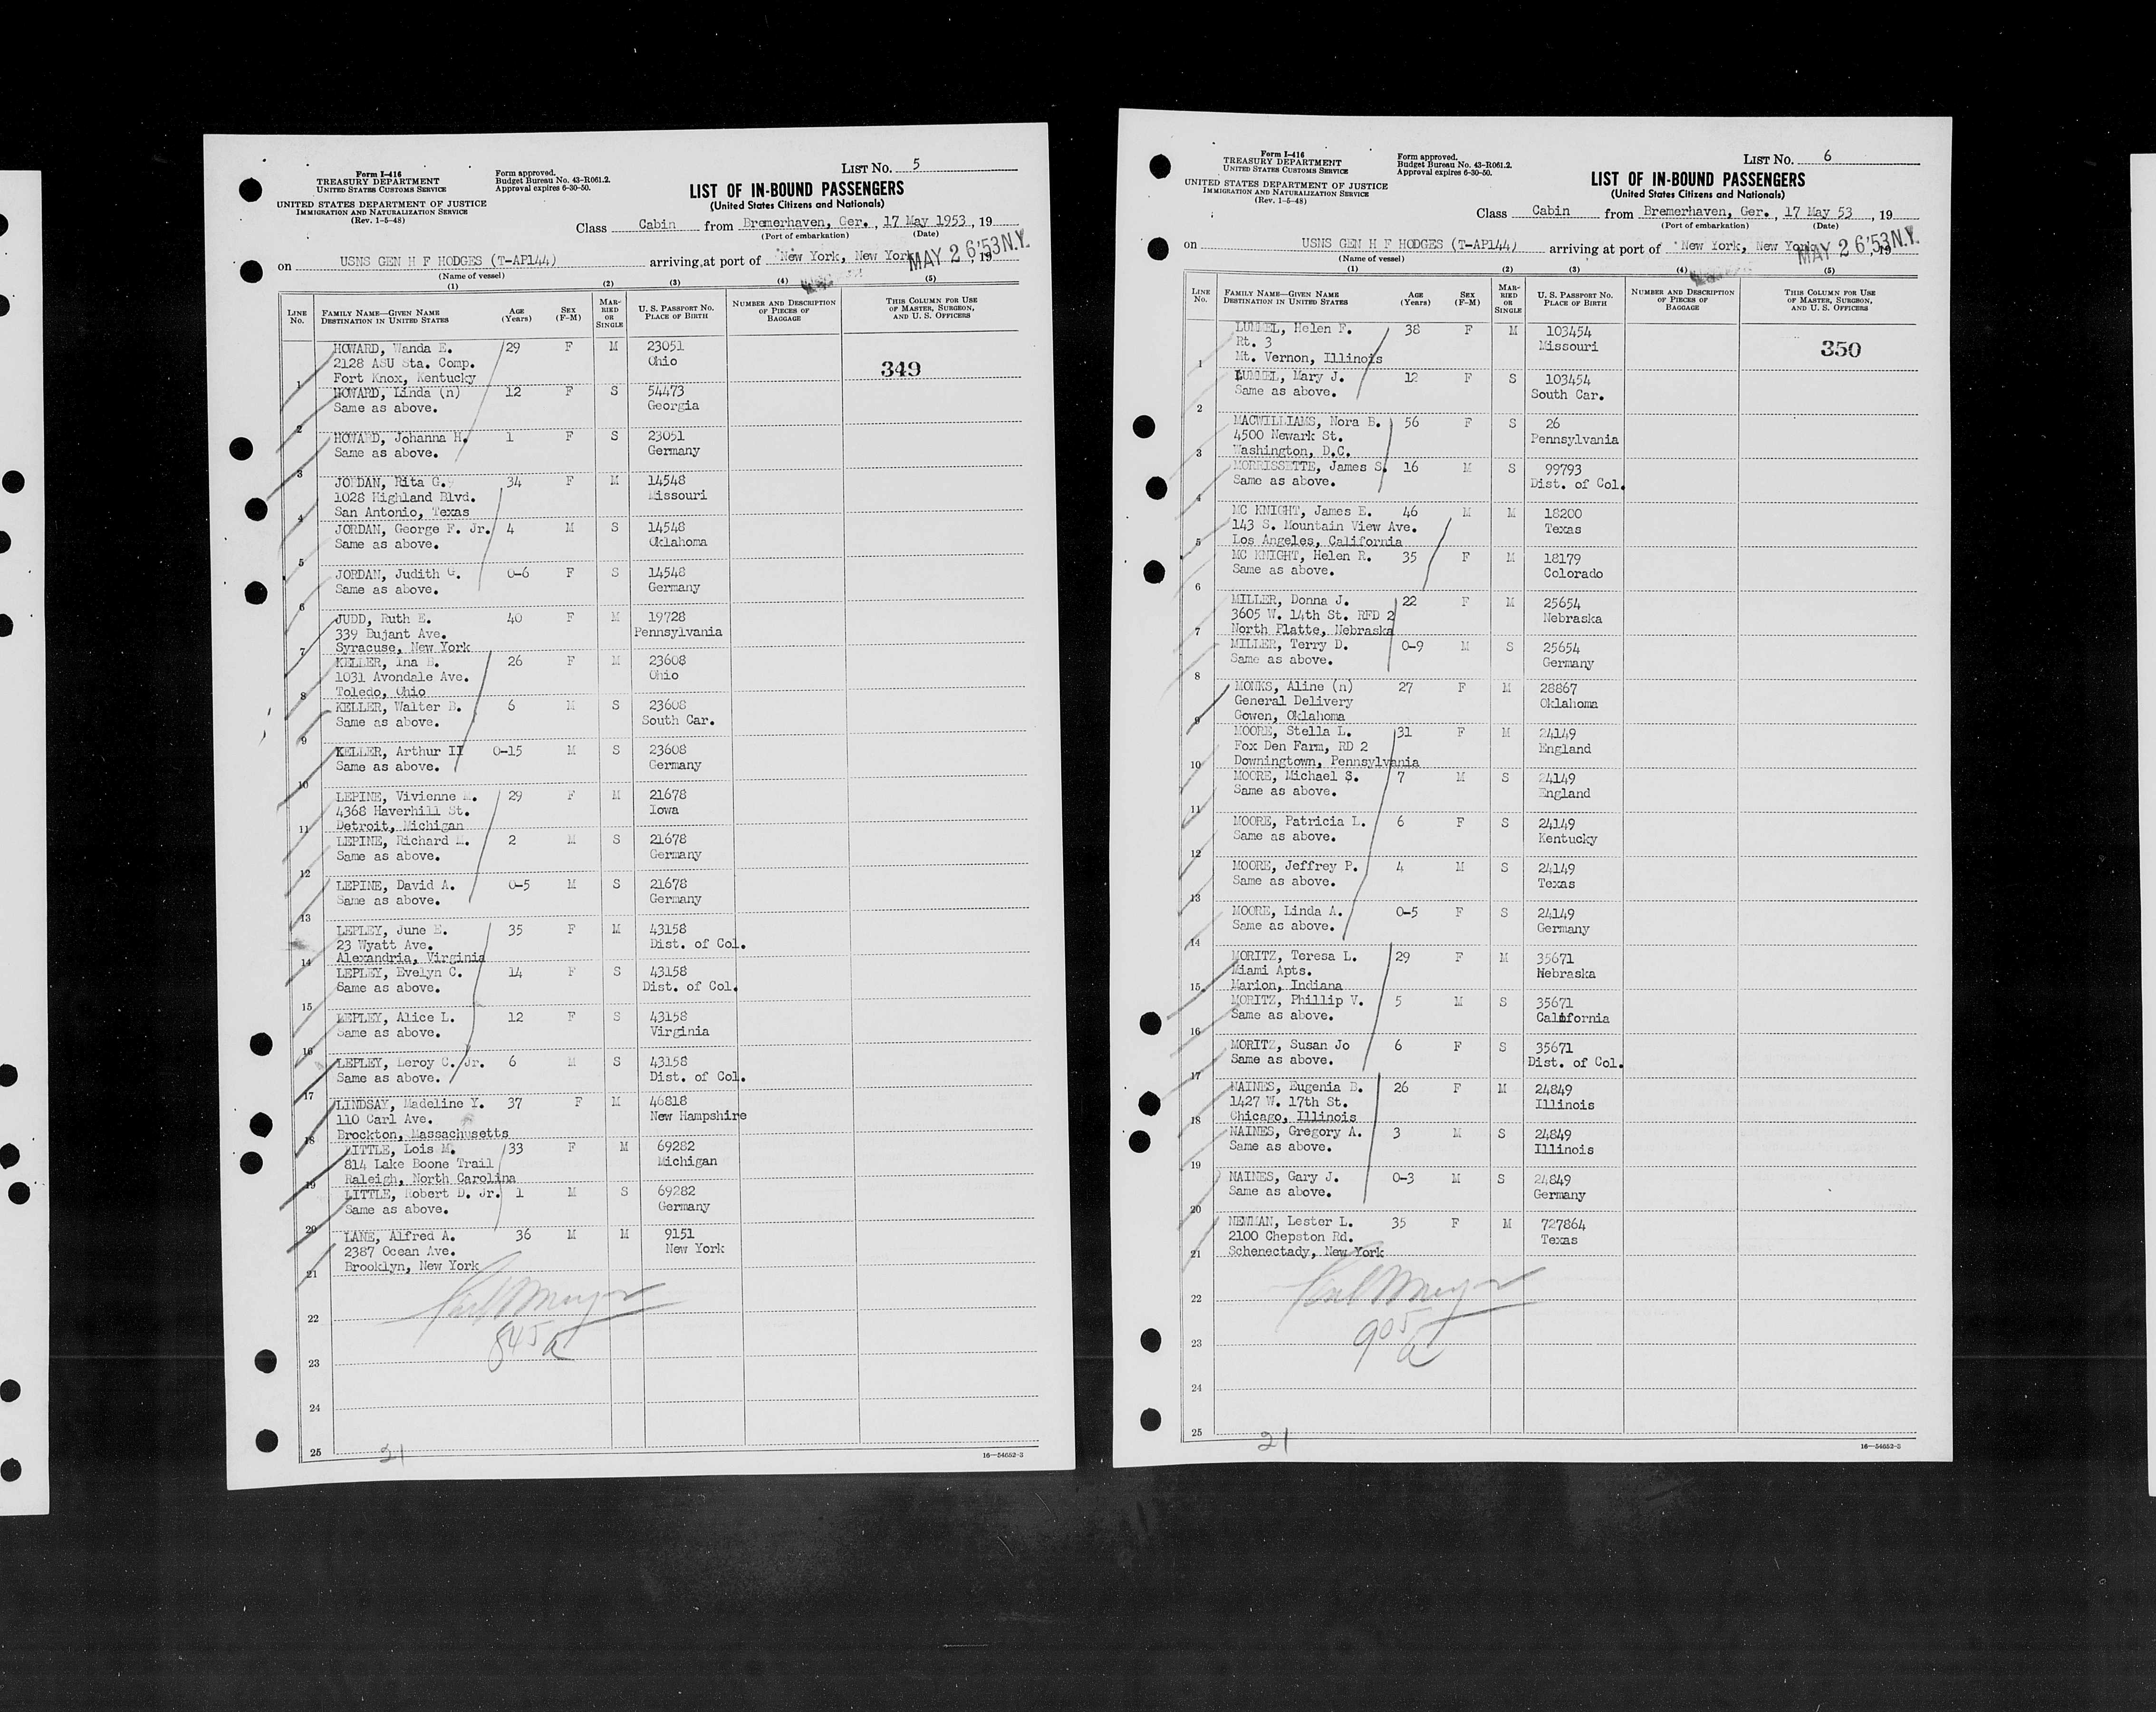 Form I-416
TREASURY DEPARTMENT
UNITED STATES CUSTOMS SERVICE
UNITED STATES DEPARTMENT OF JUSTICE
IMMIGRATION AND NATURALIZATION SERVICE
(Rev. 1-5-48)
Form approved.
Budget Bureau No. 43-R061.2.
Approval expires 6-30-50.
LIST No. 5
LIST OF IN-BOUND PASSENGERS
(United States Citizens and Nationals)
Class Cabin from Bremerhaven, Ger., 17 May 1953, 19
(Port of embarkation) (Date)
on USNS GEN H F HODGES (T-AP144) arriving at port of New York, New York, 19
MAY 26'53 N.Y.
(Name of vessel)
(1) (2) (3) (4) (5)
LINE No. FAMILY NAME—GIVEN NAME DESTINATION IN UNITED STATES AGE (Years) SEX (F-M) MARRIED OR SINGLE U. S. PASSPORT No. PLACE OF BIRTH NUMBER AND DESCRIPTION OF PIECES OF BAGGAGE THIS COLUMN FOR USE OF MASTER, SURGEON, AND U. S. OFFICERS
349
HOWARD, Wanda E. 29 F M 23051
2128 ASU Sta. Comp. Ohio
1 Fort Knox, Kentucky
HOWARD, Linda (n) 12 F S 54473
Same as above. Georgia
2
HOWARD, Johanna H. 1 F S 23051
Same as above. Germany
3
JORDAN, Rita G. 34 F M 14548
1028 Highland Blvd. Missouri
4 San Antonio, Texas
JORDAN, George F. Jr. 4 M S 14548
Same as above. Oklahoma
5
JORDAN, Judith G. 0-6 F S 14548
Same as above. Germany
6
JUDD, Ruth E. 40 F M 19728
339 Dujant Ave. Pennsylvania
7 Syracuse, New York
KELLER, Ina B. 26 F M 23608
1031 Avondale Ave. Ohio
8 Toledo, Ohio
KELLER, Walter B. 6 M S 23608
Same as above. South Car.
9
KELLER, Arthur II 0-15 M S 23608
Same as above. Germany
10
LEPINE, Vivienne 29 F M 21678
4368 Haverhill St. Iowa
11 Detroit, Michigan
LEPINE, Richard M. 2 M S 21678
Same as above. Germany
12
LEPINE, David A. 0-5 M S 21678
Same as above. Germany
13
LEPLEY, June E. 35 F M 43158
23 Wyatt Ave. Dist. of Col.
14 Alexandria, Virginia
LEPLEY, Evelyn C. 14 F S 43158
Same as above. Dist. of Col.
15
LEPLEY, Alice L. 12 F S 43158
Same as above. Virginia
16
LEPLEY, Leroy C. Jr. 6 M S 43158
Same as above. Dist. of Col.
17
LINDSAY, Madeline Y. 37 F M 46818
110 Carl Ave. New Hampshire
18 Brockton, Massachusetts
LITTLE, Lois M. 33 F M 69282
814 Lake Boone Trail Michigan
19 Raleigh, North Carolina
LITTLE, Robert D. Jr. 1 M S 69282
Same as above. Germany
20
LANE, Alfred A. 36 M M 9151
2387 Ocean Ave. New York
21 Brooklyn, New York
22
845 a
23
24
25 21
16—54652-3
Form I-416
TREASURY DEPARTMENT
UNITED STATES CUSTOMS SERVICE
UNITED STATES DEPARTMENT OF JUSTICE
IMMIGRATION AND NATURALIZATION SERVICE
(Rev. 1-5-48)
Form approved.
Budget Bureau No. 43-R061.2.
Approval expires 6-30-50.
LIST No. 6
LIST OF IN-BOUND PASSENGERS
(United States Citizens and Nationals)
Class Cabin from Bremerhaven, Ger., 17 May 53, 19
(Port of embarkation) (Date)
on USNS GEN H F HODGES (T-AP144) arriving at port of New York, New York, 19
MAY 26'53 N.Y.
(Name of vessel)
(1) (2) (3) (4) (5)
LINE No. FAMILY NAME—GIVEN NAME DESTINATION IN UNITED STATES AGE (Years) SEX (F-M) MARRIED OR SINGLE U. S. PASSPORT No. PLACE OF BIRTH NUMBER AND DESCRIPTION OF PIECES OF BAGGAGE THIS COLUMN FOR USE OF MASTER, SURGEON, AND U. S. OFFICERS
350
LUMMEL, Helen F. 38 F M 103454
Rt. 3 Missouri
1 Mt. Vernon, Illinois
LUMMEL, Mary J. 12 F S 103454
Same as above. South Car.
2
MACWILLIAMS, Nora B. 56 F S 26
4500 Newark St. Pennsylvania
3 Washington, D.C.
MORRISSETTE, James S. 16 M S 99793
Same as above. Dist. of Col.
4
MC KNIGHT, James E. 46 M M 18200
143 S. Mountain View Ave. Texas
5 Los Angeles, California
MC KNIGHT, Helen R. 35 F M 18179
Same as above. Colorado
6
MILLER, Donna J. 22 F M 25654
3605 W. 14th St. RFD 2 Nebraska
7 North Platte, Nebraska
MILLER, Terry D. 0-9 M S 25654
Same as above. Germany
8
MONKS, Aline (n) 27 F M 28867
General Delivery Oklahoma
9 Gowen, Oklahoma
MOORE, Stella L. 31 F M 24149
Fox Den Farm, RD 2 England
10 Downingtown, Pennsylvania
MOORE, Michael S. 7 M S 24149
Same as above. England
11
MOORE, Patricia L. 6 F S 24149
Same as above. Kentucky
12
MOORE, Jeffrey P. 4 M S 24149
Same as above. Texas
13
MOORE, Linda A. 0-5 F S 24149
Same as above. Germany
14
MORITZ, Teresa L. 29 F M 35671
Miami Apts. Nebraska
15 Marion, Indiana
MORITZ, Phillip V. 5 M S 35671
Same as above. California
16
MORITZ, Susan Jo 6 F S 35671
Same as above. Dist. of Col.
17
NAINES, Eugenia B. 26 F M 24849
1427 W. 17th St. Illinois
18 Chicago, Illinois
NAINES, Gregory A. 3 M S 24849
Same as above. Illinois
19
NAINES, Gary J. 0-3 M S 24849
Same as above. Germany
20
NEWMAN, Lester L. 35 F M 727864
2100 Chepston Rd. Texas
21 Schenectady, New York
22
905 a
23
24
25 21
16—54652-3